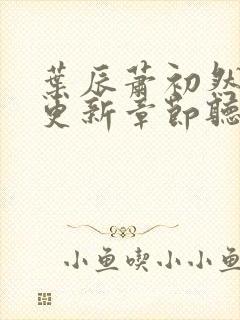 葉辰蕭初然
更新章節聽
小魚喫小小魚